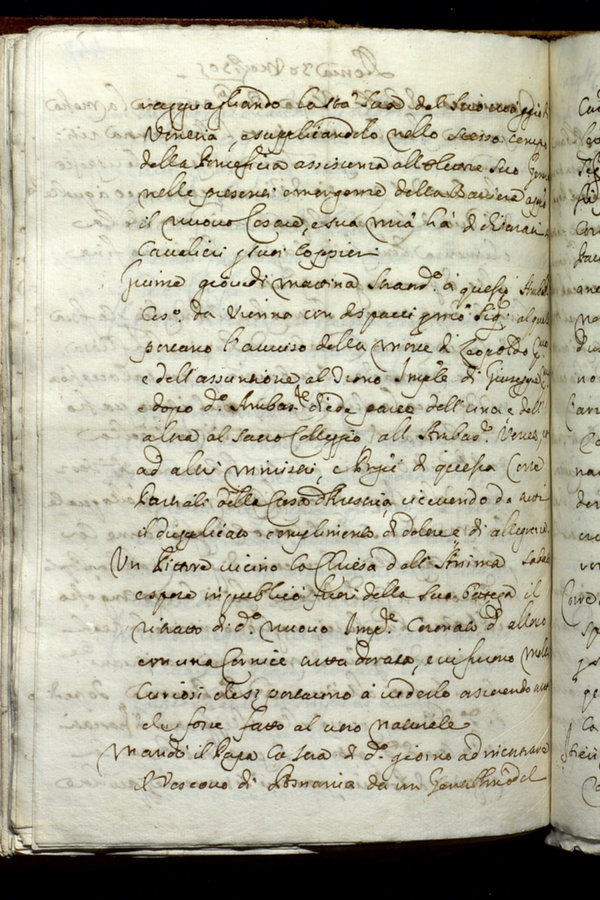 ragguagliando la stà sua del suo viaggio di
Venetia, e supplicandolo nello stesso tempo
della benefica assistenza all'Elettore suo
nelle presenti emergenze della Baviera
il nuovo Cesare, e sua mtà hà dichiarati
Cavalieri, e suoi Coppieri
Giunse giovedì mattina à questo Amb.
Ces.o da Vienna con dispacci
portano l'avviso della morte di Leopoldo P.mo
e dell'assuntione al Trono Imple di Giuseppe
e dopo d.o Ambas.re diede parte dell'una e dell'
altra al sacro Colleggio, all'Ambas.r Veneto
ad altri ministri, e Prpi di questa Corte
partiali della Casa d'Austria, ricevendo da tutti
il duplicato complimento di dolore, e di allegrezza
Un Pittore vicino la Chiesa dell'Anima
espose in publico fuori della sua bottega il
ritratto di d.o nuovo Imp.re Coronato d'alloro
con una Cornice tutta dorata, e vi furono molti
Curiosi che si portarono à vederlo asserendo
che fosse fatto al vero naturale
Mandò il Papa la sera di d.o giorno ad
il Vescovo di Posnania da un Gentilhuomo del